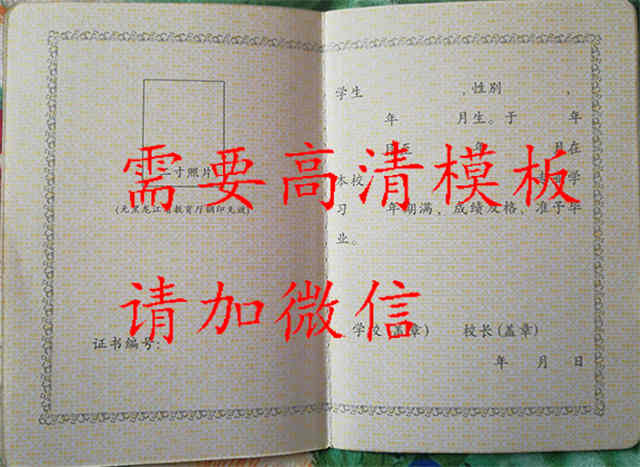 寸照片
(无黑龙江省教育厅钢印无效)
证书编号:
学生 ,性别 ,
年 月生。于 年
月至 年 月在
本校 专业学
习 年期满,成绩及格,准予毕
业。
学校(盖章) 校长(盖章)
年 月 日
需要高清模板
请加微信